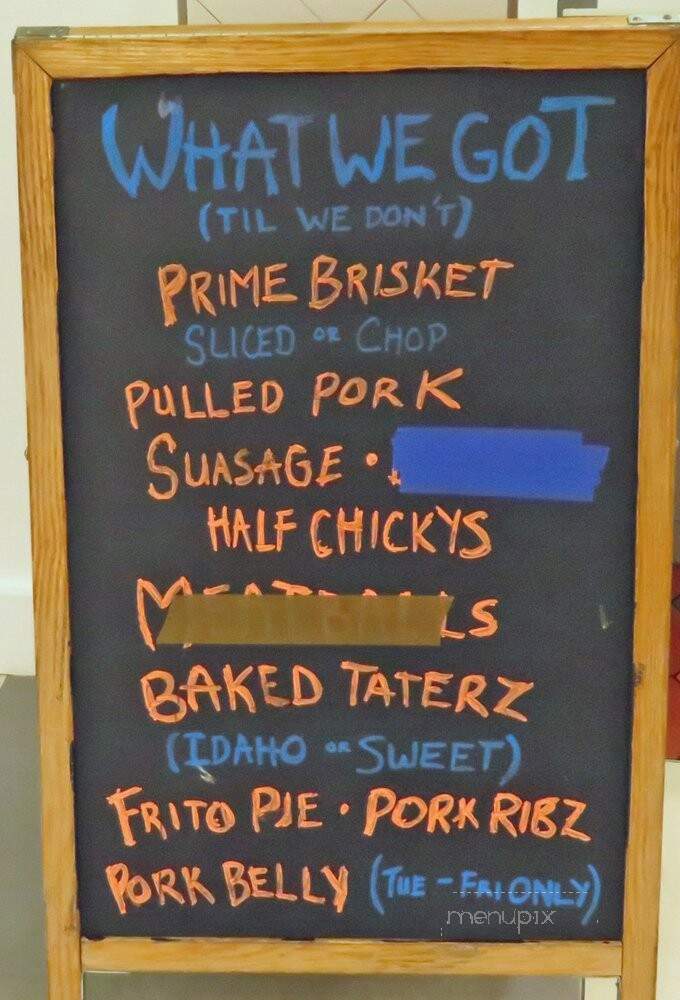 WHAT WE GOT
(TIL WE DON'T)
PRIME BRISKET
SLICED OR CHOP
PULLED PORK
SUASAGE •
HALF CHICKYS
MEATBALLS
BAKED TATERZ
(IDAHO OR SWEET)
FRITO PIE • PORK RIBZ
PORK BELLY (TUE - FRI ONLY)
menupix